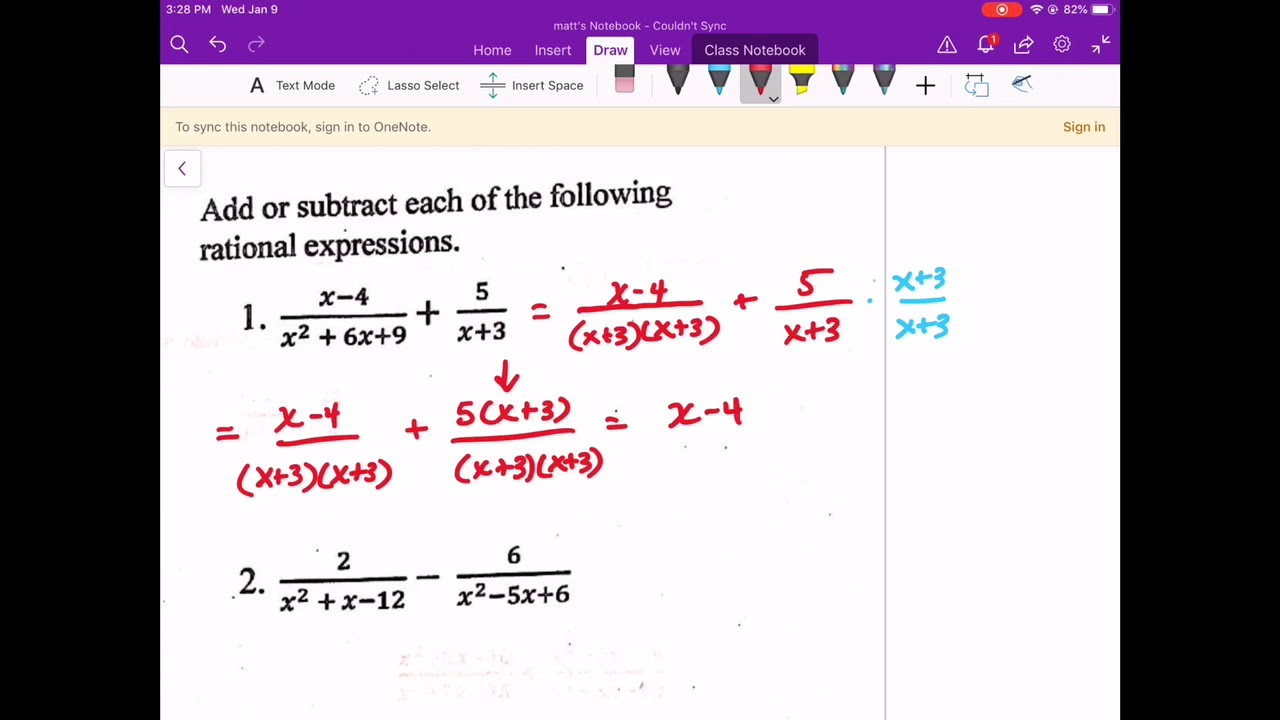 3:28 PM Wed Jan 9 82%
matt's Notebook - Couldn't Sync
Home Insert Draw View Class Notebook 1
A Text Mode Lasso Select Insert Space
To sync this notebook, sign in to OneNote. Sign in
Add or subtract each of the following
rational expressions.
1. (x-4)/(x² + 6x+9) + 5/(x+3) = (x-4)/((x+3)(x+3)) + 5/(x+3) · (x+3)/(x+3)
= (x-4)/((x+3)(x+3)) + 5(x+3)/((x+3)(x+3)) = x-4
2. 2/(x² + x-12) − 6/(x²-5x+6)